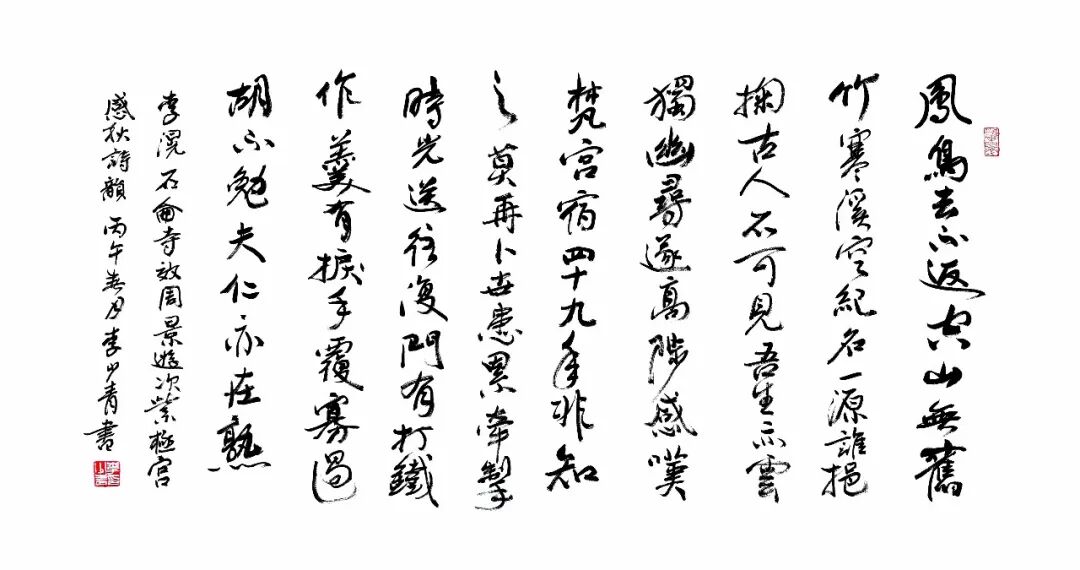 鳳鳥去不返空山無舊
竹寒溪空紀名一源誰挹
掬古人不可見吾生亦雲
獨幽尋遂高陟感嘆
梵宮宿四十九年非知
之莫再卜世患累牽掣
時光送往復門有打鐵
作羹有捩手覆寡過
胡不勉夫仁亦在熟
李滉石侖寺效周景遊次紫極宮
感秋詩韻 丙午春月李少青書